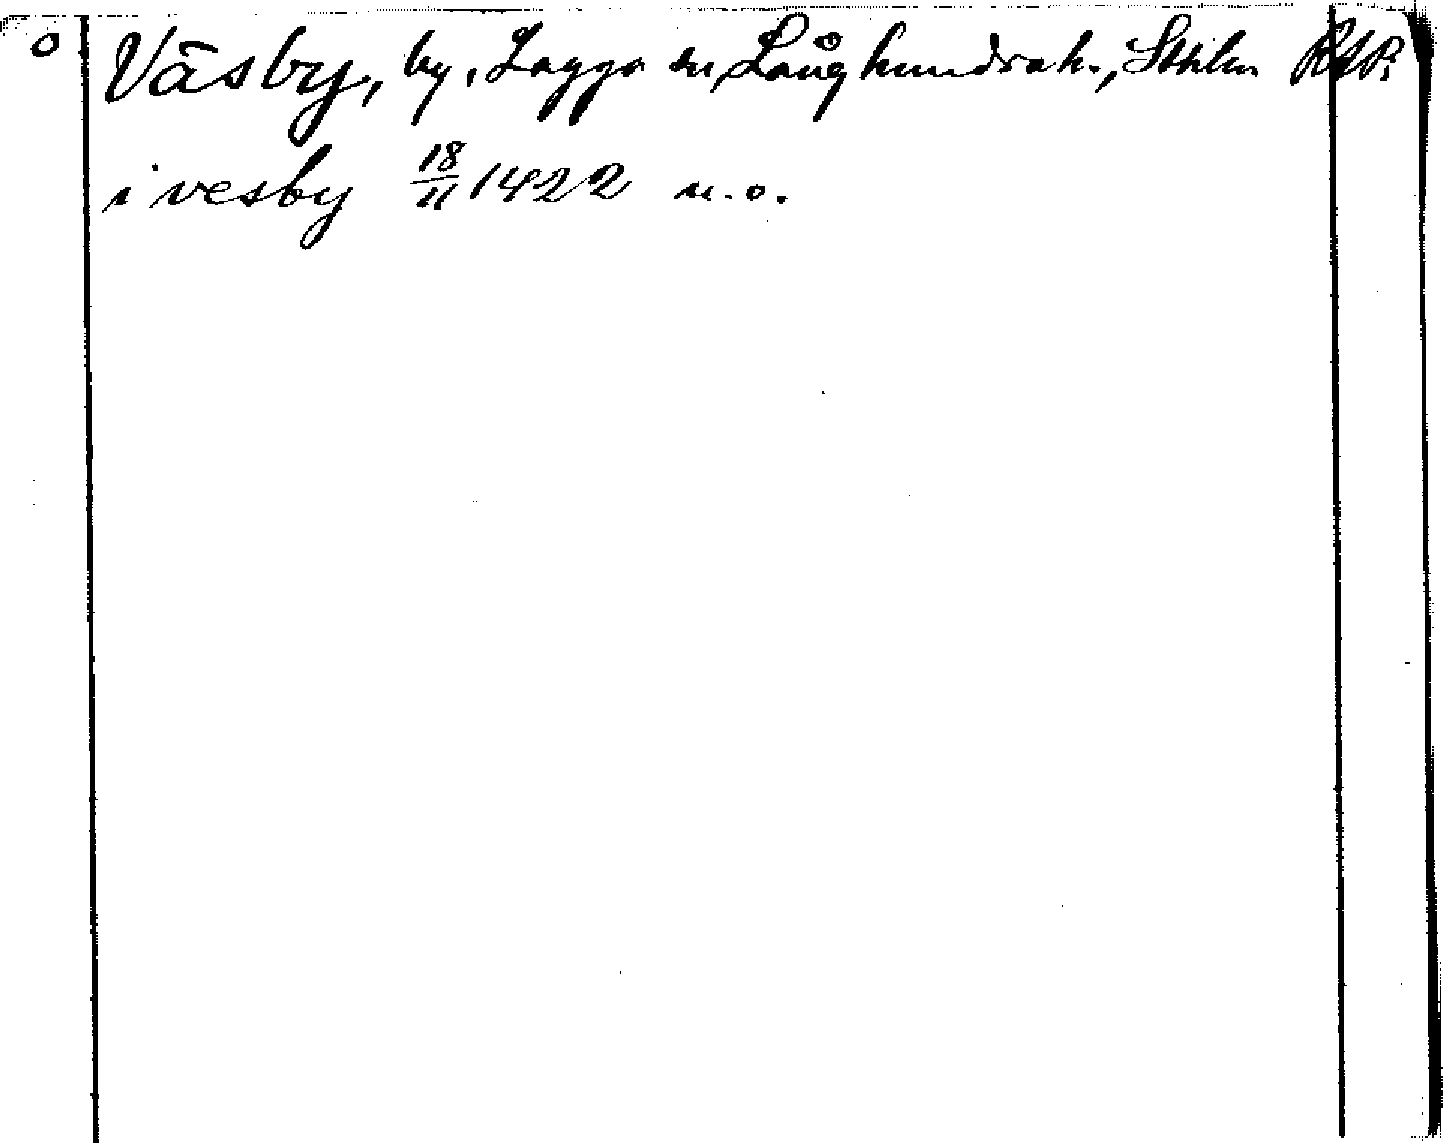 o Väsby, by, Lagga sn, Långhundra h., Sthlm RAP.
i vesby 18/11 1422 u.o.